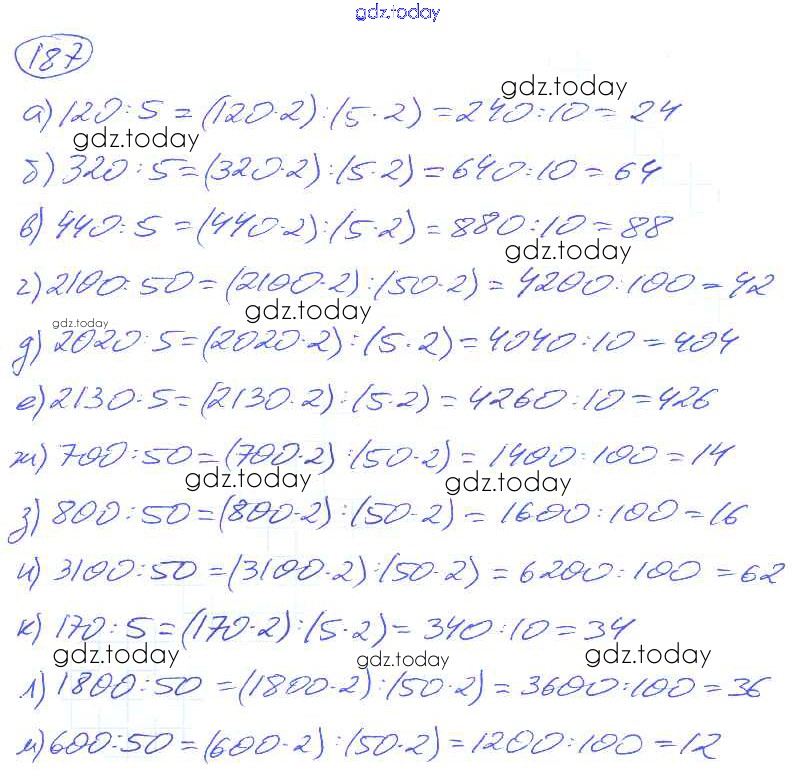 gdz.today
187
gdz.today
а) 120 : 5 = (120·2) : (5·2) = 240 : 10 = 24
gdz.today
б) 320 : 5 = (320·2) : (5·2) = 640 : 10 = 64
в) 440 : 5 = (440·2) : (5·2) = 880 : 10 = 88
gdz.today
г) 2100 : 50 = (2100·2) : (50·2) = 4200 : 100 = 42
gdz.today
gdz.today
д) 2020 : 5 = (2020·2) : (5·2) = 4040 : 10 = 404
е) 2130 : 5 = (2130·2) : (5·2) = 4260 : 10 = 426
ж) 700 : 50 = (700·2) : (50·2) = 1400 : 100 = 14
gdz.today gdz.today
з) 800 : 50 = (800·2) : (50·2) = 1600 : 100 = 16
и) 3100 : 50 = (3100·2) : (50·2) = 6200 : 100 = 62
к) 170 : 5 = (170·2) : (5·2) = 340 : 10 = 34
gdz.today gdz.today gdz.today
л) 1800 : 50 = (1800·2) : (50·2) = 3600 : 100 = 36
м) 600 : 50 = (600·2) : (50·2) = 1200 : 100 = 12